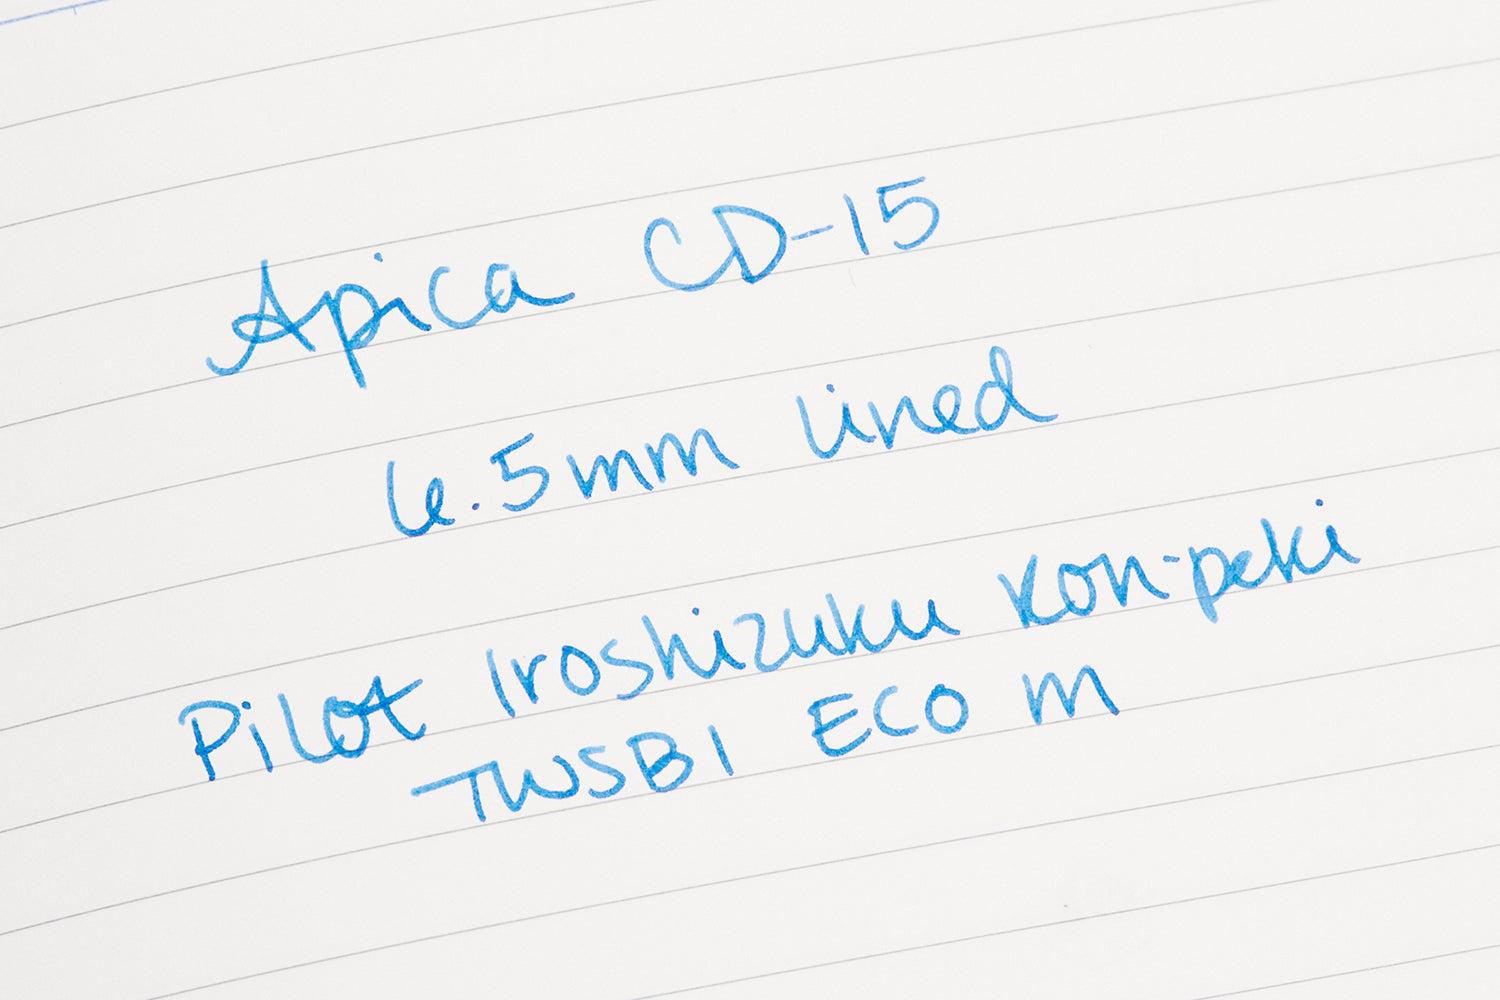 Apica CD-15
6.5mm lined
Pilot Iroshizuku Kon-peki
TWSBI ECO M